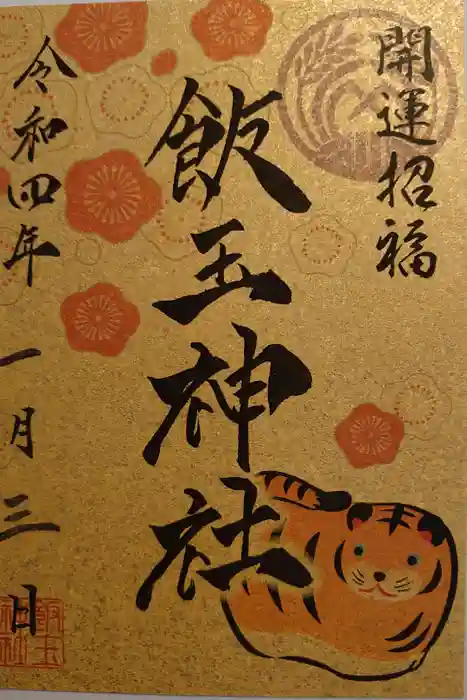 開運招福
飯玉神社
令和四年
一月三日
飯玉
神社